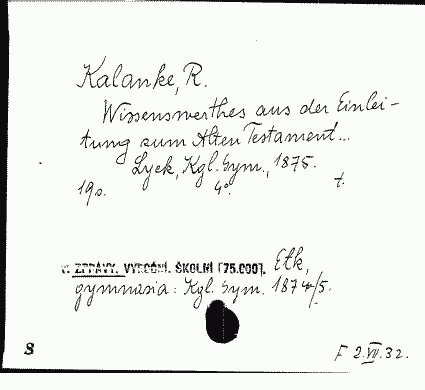 Kalanke, R.
Wissenswerthes aus der Einlei-
tung zum Alten Testament...
Lyck, Kgl. Gym., 1875.
19 s. 4°. t.
ZPRÁVY. VÝROČNÍ. ŠKOLNÍ [75.000].
gymnasia: Kgl. Gym. 1874/5.
S F 2.VII.32.